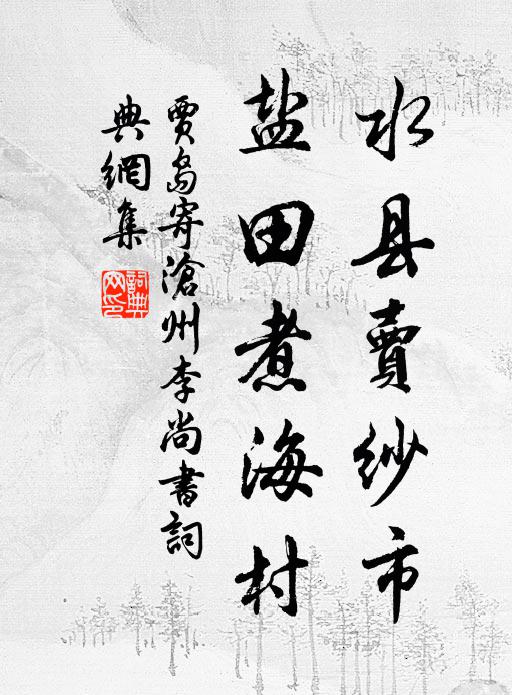 水县賣紗市
盐田煮海村
賈岛寄滄州李尚書詞
典網集
詞典
网印